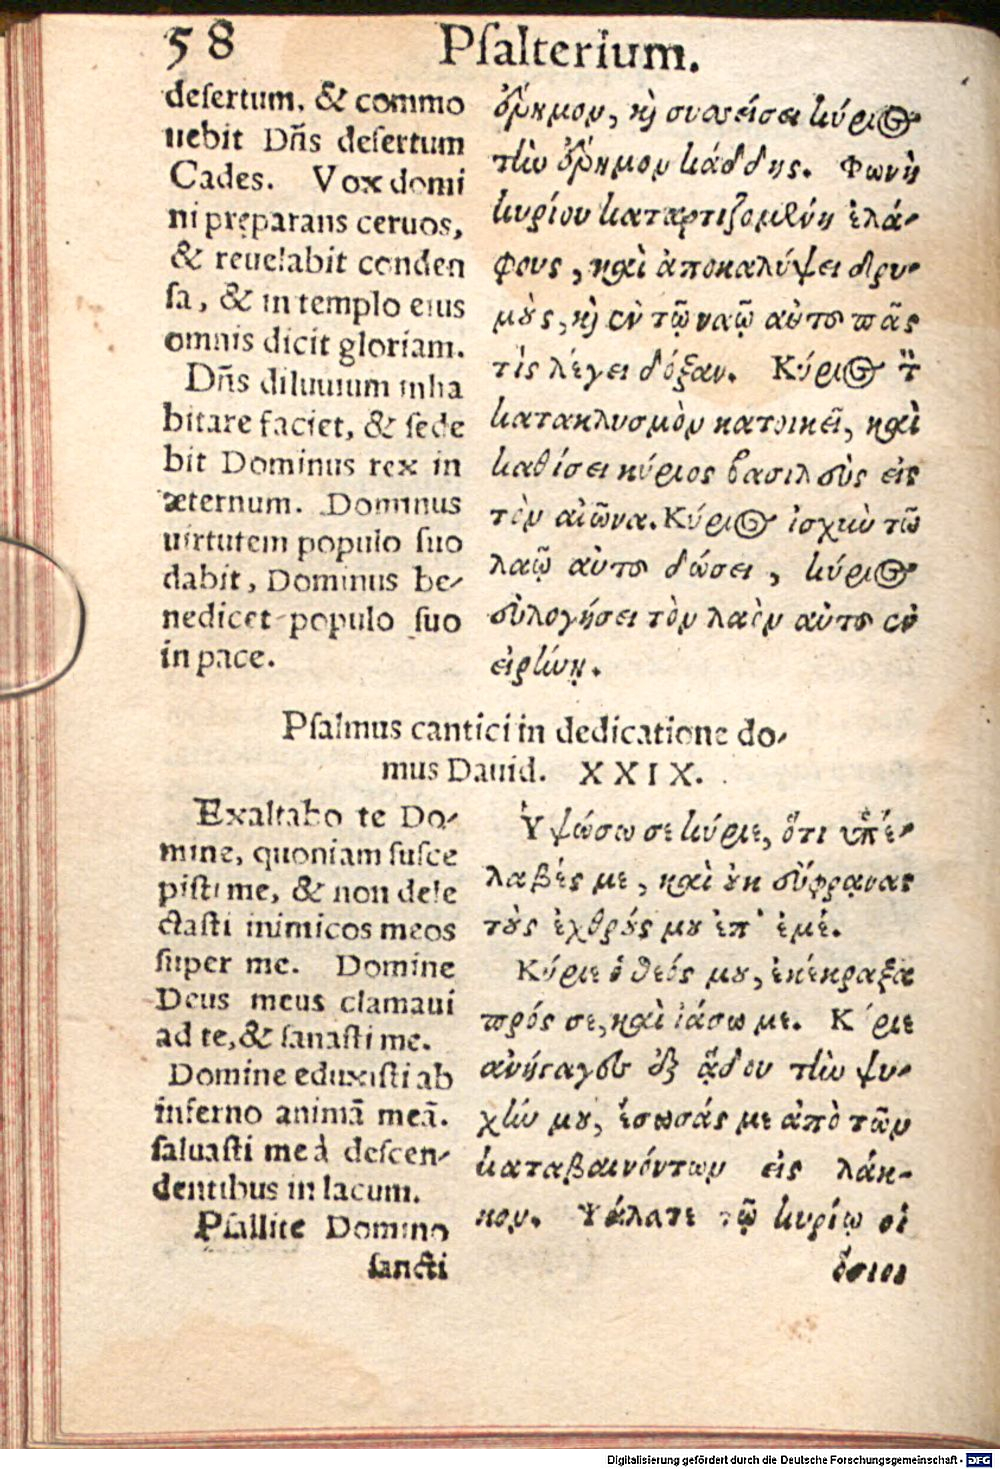 58 Psalterium.
desertum, & commo
uebit Dñs desertum
Cades. Vox domi
ni pręparans ceruos,
& reuelabit conden
sa, & in templo eius
omnis dicit gloriam.
Dñs diluuium inha
bitare faciet, & sede
bit Dominus rex in
æternum. Dominus
uirtutem populo suo
dabit, Dominus be-
nedicet populo suo
in pace.
ἔρημον, καὶ συσσείσει κύριος
τὴν ἔρημον κάδδης. Φωνὴ
κυρίου καταρτιζομένη ἐλά-
φους, καὶ ἀποκαλύψει δρυ-
μοὺς, καὶ ἐν τῷ ναῷ αὐτοῦ πᾶς
τὶς λέγει δόξαν. Κύριος τὸ
κατακλυσμὸν κατοικεῖ, καὶ
καθίσει κύριος βασιλεὺς εἰς
τὸν αἰῶνα. Κύριος ἰσχὺν τῷ
λαῷ αὐτοῦ δώσει, κύριος
εὐλογήσει τὸν λαὸν αὐτοῦ ἐν
εἰρήνῃ.
Psalmus cantici in dedicatione do-
mus Dauid. XXIX.
Exaltabo te Do-
mine, quoniam susce
pisti me, & non dele
ctasti inimicos meos
super me. Domine
Deus meus clamaui
ad te, & sanasti me.
Domine eduxisti ab
inferno animã meã.
saluasti me à descen-
dentibus in lacum.
Psallite Domino
sancti
Ὑψώσω σε κύριε, ὅτι ὑπέ-
λαβές με, καὶ οὐκ εὔφρανας
τοὺς ἐχθρούς μου ἐπ' ἐμέ.
Κύριε ὁ θεός μου, ἐκέκραξα
πρός σε, καὶ ἰάσω με. Κύριε
ἀνήγαγες ἐξ ᾅδου τὴν ψυ-
χήν μου, ἔσωσάς με ἀπὸ τῶν
καταβαινόντων εἰς λάκ-
κον. Ψάλατε τῷ κυρίῳ οἱ
ὅσιοι
Digitalisierung gefördert durch die Deutsche Forschungsgemeinschaft - DFG